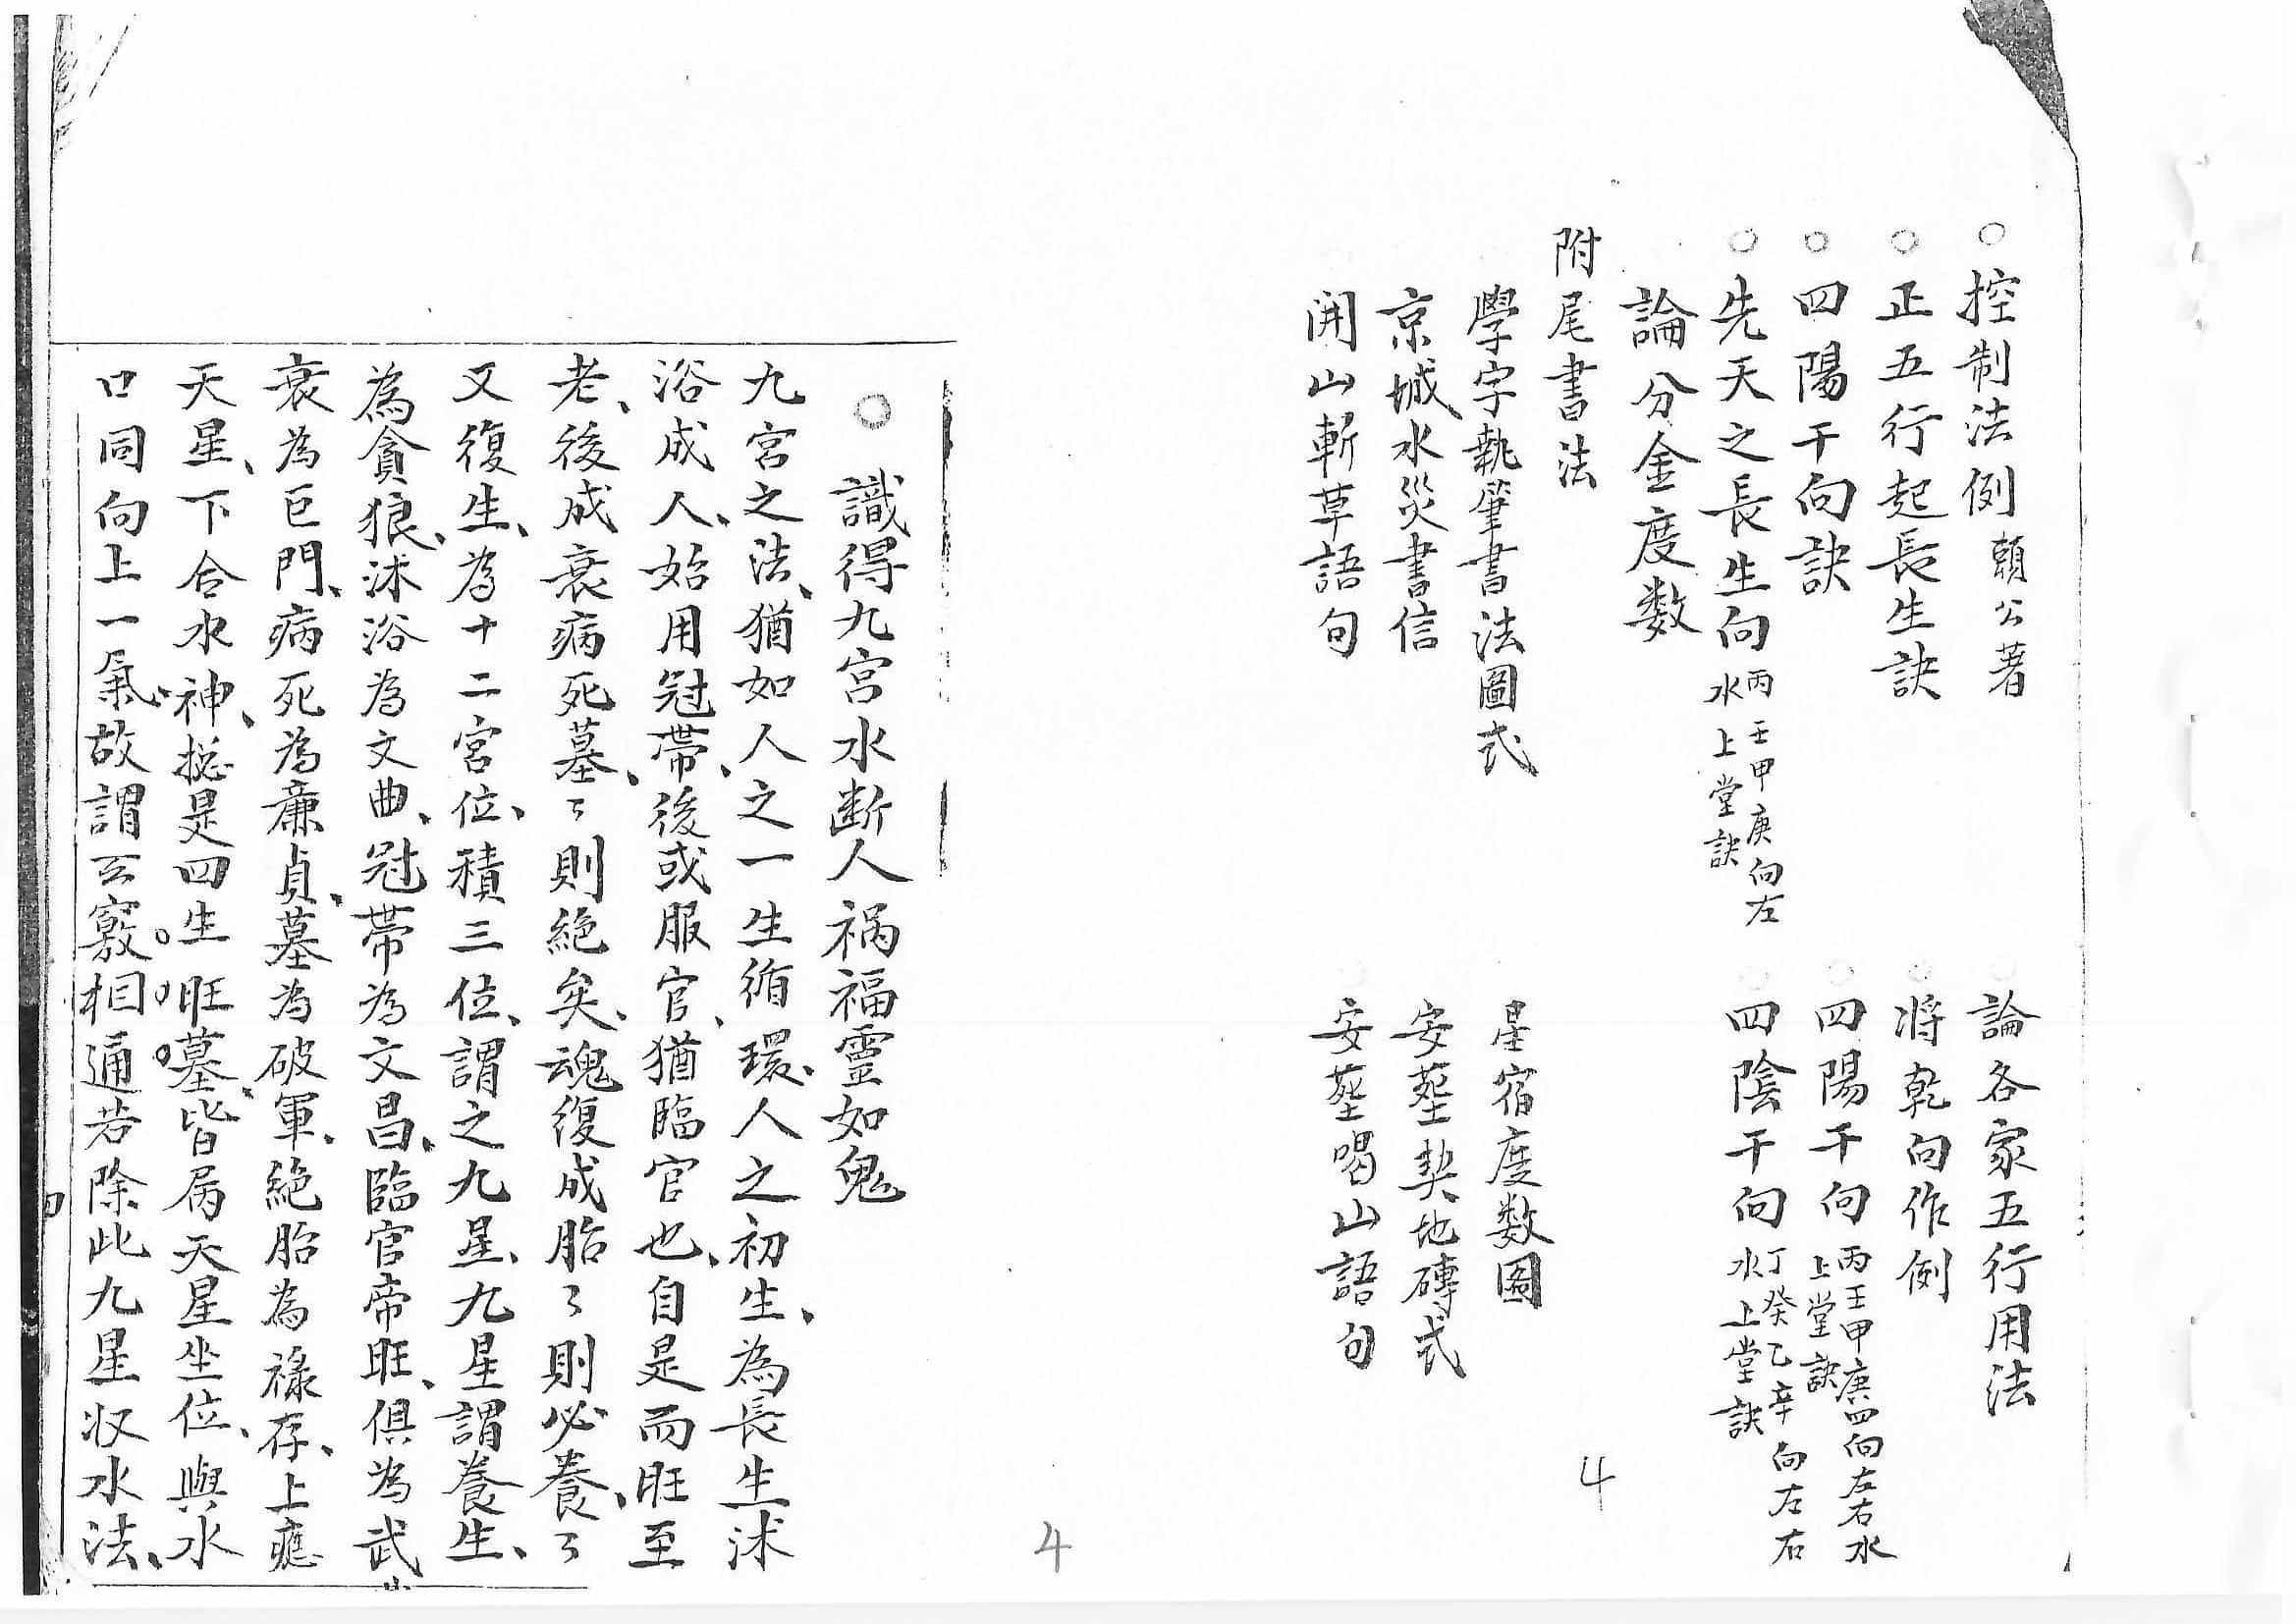 ○控制法例 賴公著
論各家五行用法
○正五行起長生訣
將乾向作例
○四陽干向訣
四陽干向 丙壬甲庚四向左右水上堂訣
○先天之長生向 丙壬甲庚向左水上堂訣
四陰干向 丁癸乙辛向左右水上堂訣
論分金度数
附尾書法
學字執筆書法圖式
星宿度数图
京城水災書信
安葬契地磚式
開山斬草語句
安葬喝山語句
4
4
○識得九宮水断人禍福靈如鬼
九宮之法、猶如人之一生循環、人之初生、為長生沭
浴成人、始用冠帶、後或服官、猶臨官也、自是而旺至
老、後成衰病死墓、々則絕矣、魂復成胎々則必養、々
又復生、為十二宮位、積三位、謂之九星、九星謂養生、
為貪狼、沭浴為文曲、冠帶為文昌、臨官帝旺、俱為武
衰為巨門、病死為亷貞、墓為破軍、絕胎為祿存、上應
天星、下合水神、摠是四生旺墓、皆屬天星坐位、與水
口同向上一氣、故謂玄竅相通若除此九星収水法、